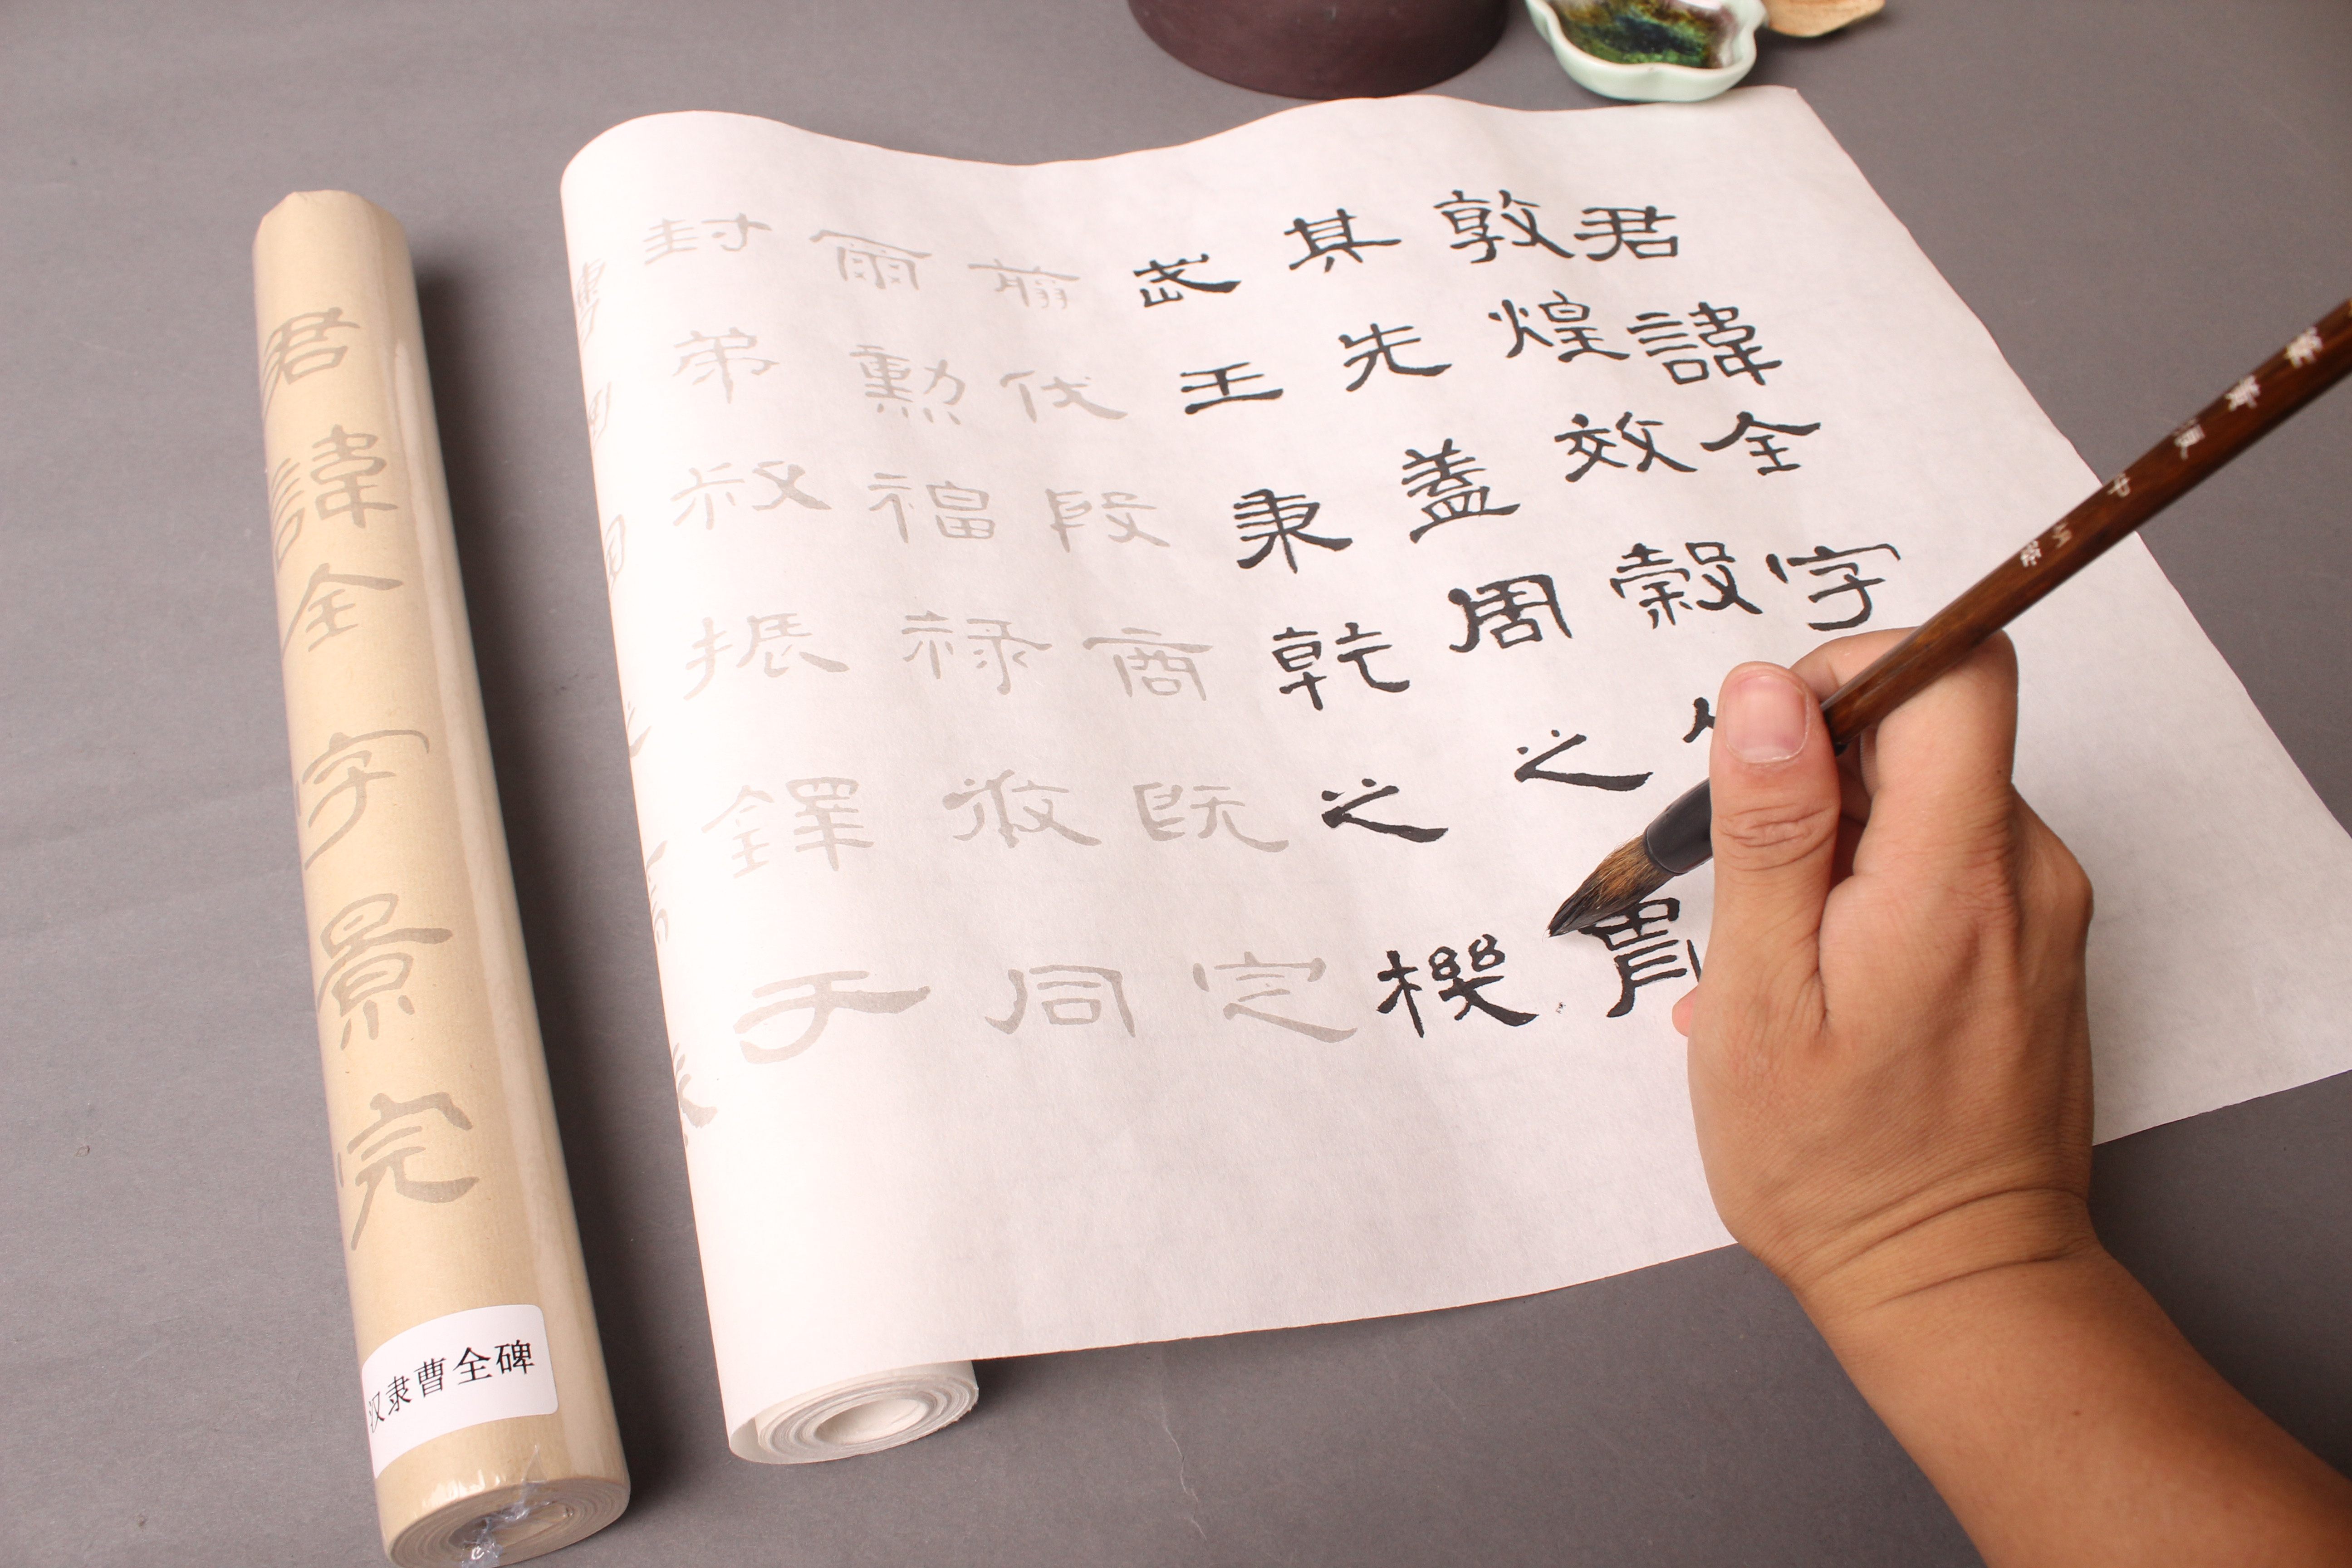 君諱全字
敦煌效穀
其先蓋周之胄
武王秉乾之機
翦伐殷商既定
爾勳福祿攸同
封弟叔振鐸于
君諱全字景完
汉隶曹全碑